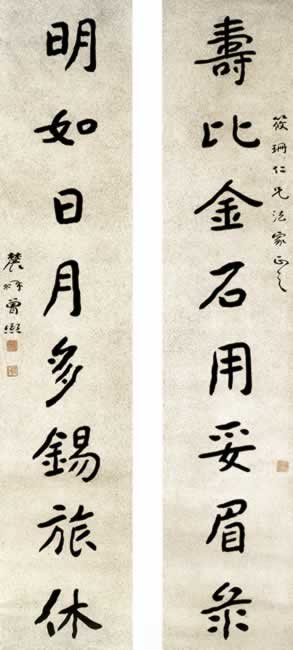 筱珊仁兄法家正之
壽比金石用妥眉彔
明如日月多錫旅休
農髯曾熙